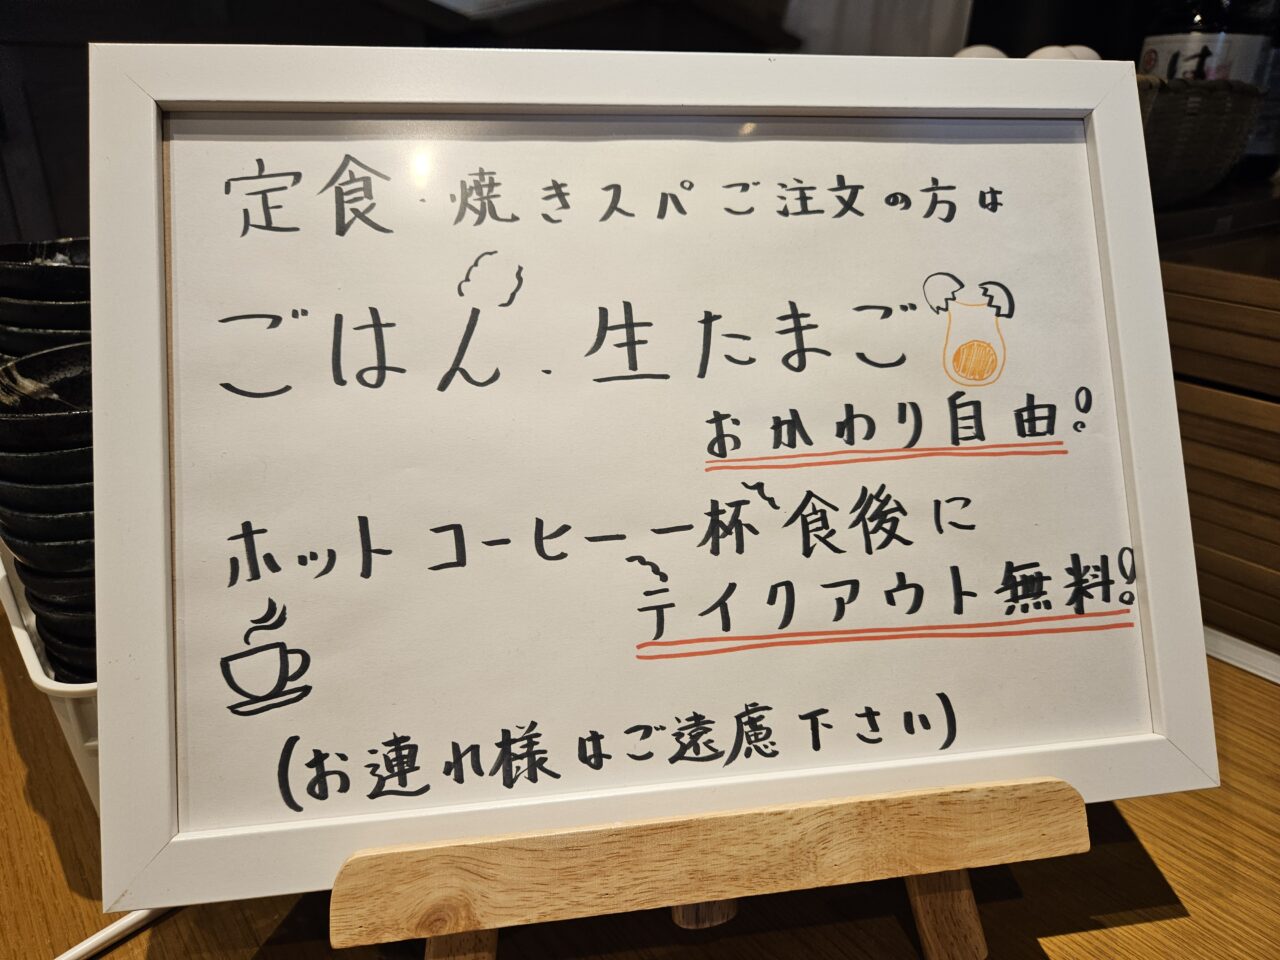 定食・焼きスパご注文の方は
ごはん・生たまご
おかわり自由!
ホットコーヒー一杯食後に
テイクアウト無料!
(お連れ様はご遠慮下さい)
は